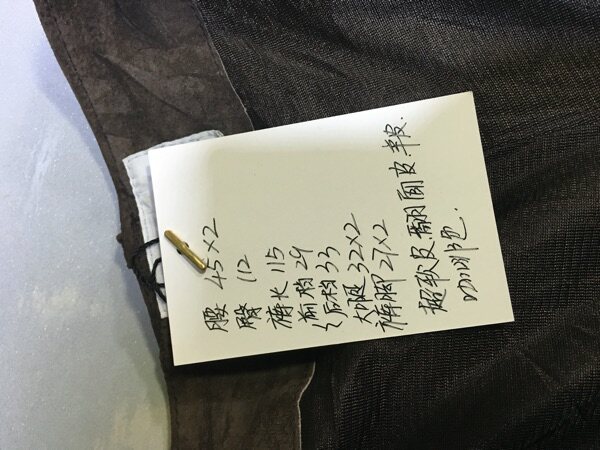 腰 45×2
臀 112
裤长 115
前裆 29
后裆 33
大腿 32×2
裤脚 27×2
超软皮.翻面皮.羊皮.
咖啡色.